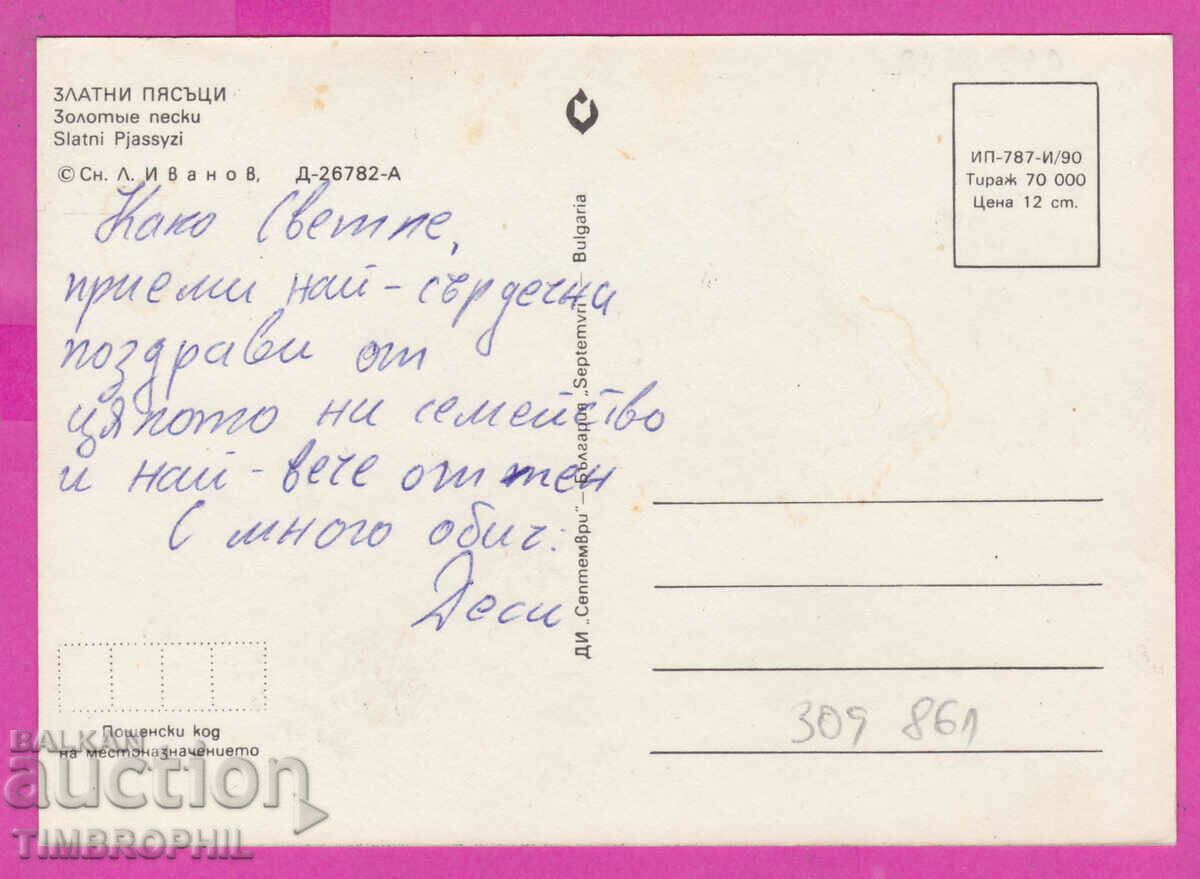 ЗЛАТНИ ПЯСЪЦИ
Золотые пески
Slatni Pjassyzi
© Сн. Л. Иванов, Д-26782-А
Како Светле,
приеми най-сърдечни
поздрави от
цялото ни семейство
и най-вече от мен
С много обич:
Деси
Пощенски код
на местоназначението
ДИ „Септември" — България „Septemvri" — Bulgaria
ИП-787-И/90
Тираж 70 000
Цена 12 ст.
309 861
BALKAN
auction
TIMBROPHIL